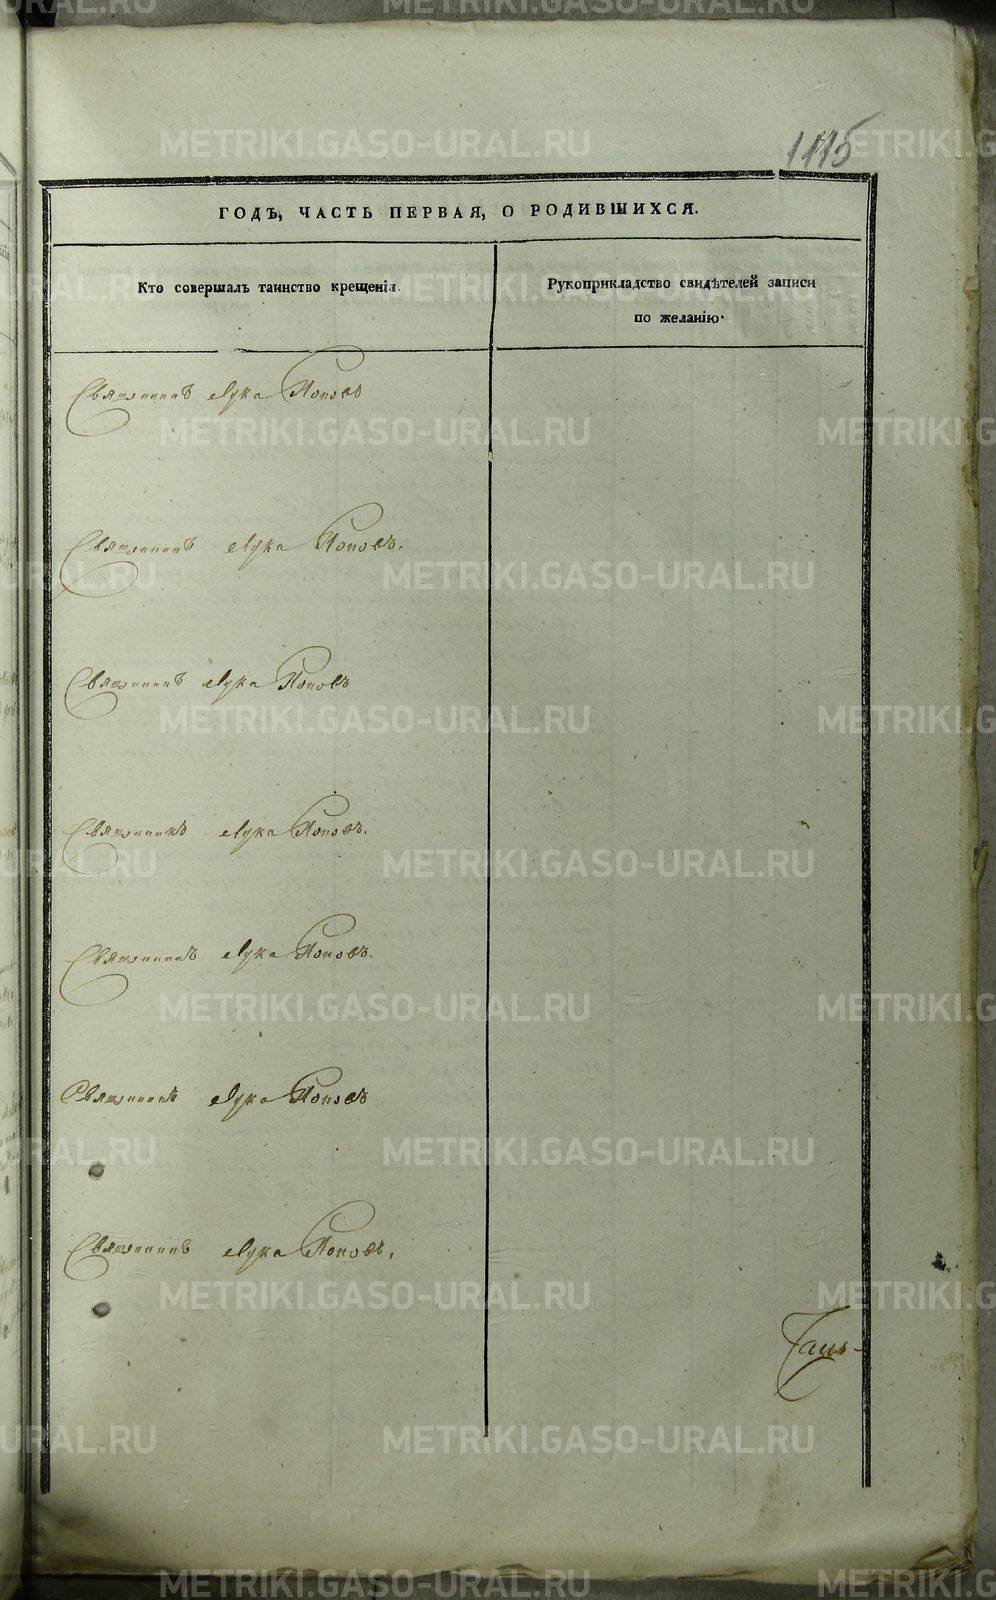 1115
ГОДЪ, ЧАСТЬ ПЕРВАЯ, О РОДИВШИХСЯ.
Кто совершалъ таинство крещенія.
Рукоприкладство свидѣтелей записи
по желанію.
Священникъ Лука Поповъ
Священникъ Лука Поповъ.
Священникъ Лука Поповъ
Священникъ Лука Поповъ.
Священникъ Лука Поповъ.
Священникъ Лука Поповъ
Священникъ Лука Поповъ.
METRIKI.GASO-URAL.RU